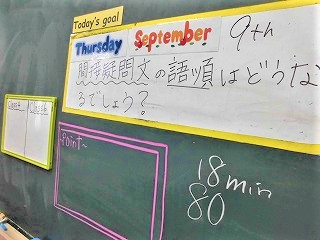 Today's goal
Thursday September 9th
間接疑問文の語順はどうな
るでしょう？
Point~
18min
80